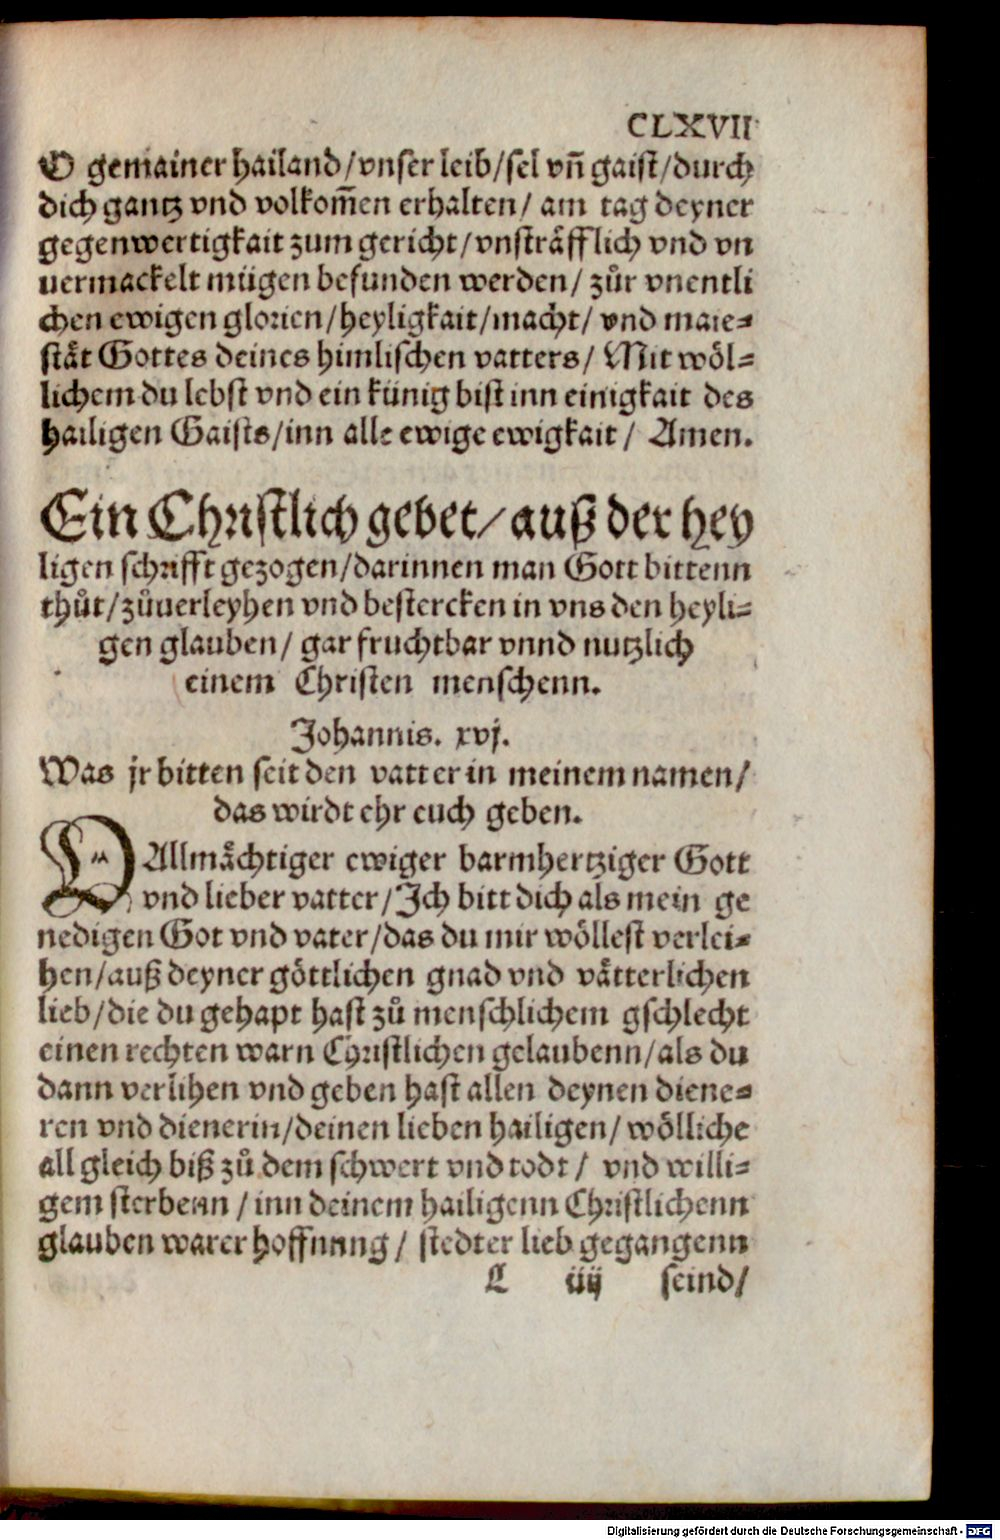 CLXVII
O gemainer hailand/vnser leib/sel vn̄ gaist/durch
dich gantz vnd volkom̄en erhalten/ am tag deyner
gegenwertigkait zum gericht/vnsträfflich vnd vn
uermackelt mügen befunden werden/ zůr vnentli
chen ewigen glorien/heyligkait/macht/ vnd maie⸗
stät Gottes deines himlischen vatters/ Mit wöl⸗
lichem du lebst vnd ein künig bist inn einigkait des
hailigen Gaists/inn alle ewige ewigkait/ Amen.
Ein Christlich gebet/ auß der hey
ligen schrifft gezogen/darinnen man Gott bittenn
thůt/zůuerleyhen vnd bestercken in vns den heyli⸗
gen glauben/ gar fruchtbar vnnd nutzlich
einem Christen menschenn.
Johannis. xvj.
Was jr bitten seit den vatter in meinem namen/
das wirdt ehr euch geben.
O Allmächtiger ewiger barmhertziger Gott
vnd lieber vatter/Ich bitt dich als mein ge
nedigen Got vnd vater/das du mir wöllest verlei⸗
hen/auß deyner göttlichen gnad vnd vätterlichen
lieb/die du gehapt hast zů menschlichem gschlecht
einen rechten warn Christlichen gelaubenn/als du
dann verlihen vnd geben hast allen deynen diene⸗
ren vnd dienerin/deinen lieben hailigen/ wölliche
all gleich biß zů dem schwert vnd todt/ vnd willi⸗
gem sterbenn/inn deinem hailigenn Christlichenn
glauben warer hoffnung/ stedter lieb gegangenn
L iiij seind/
Digitalisierung gefördert durch die Deutsche Forschungsgemeinschaft - DFG